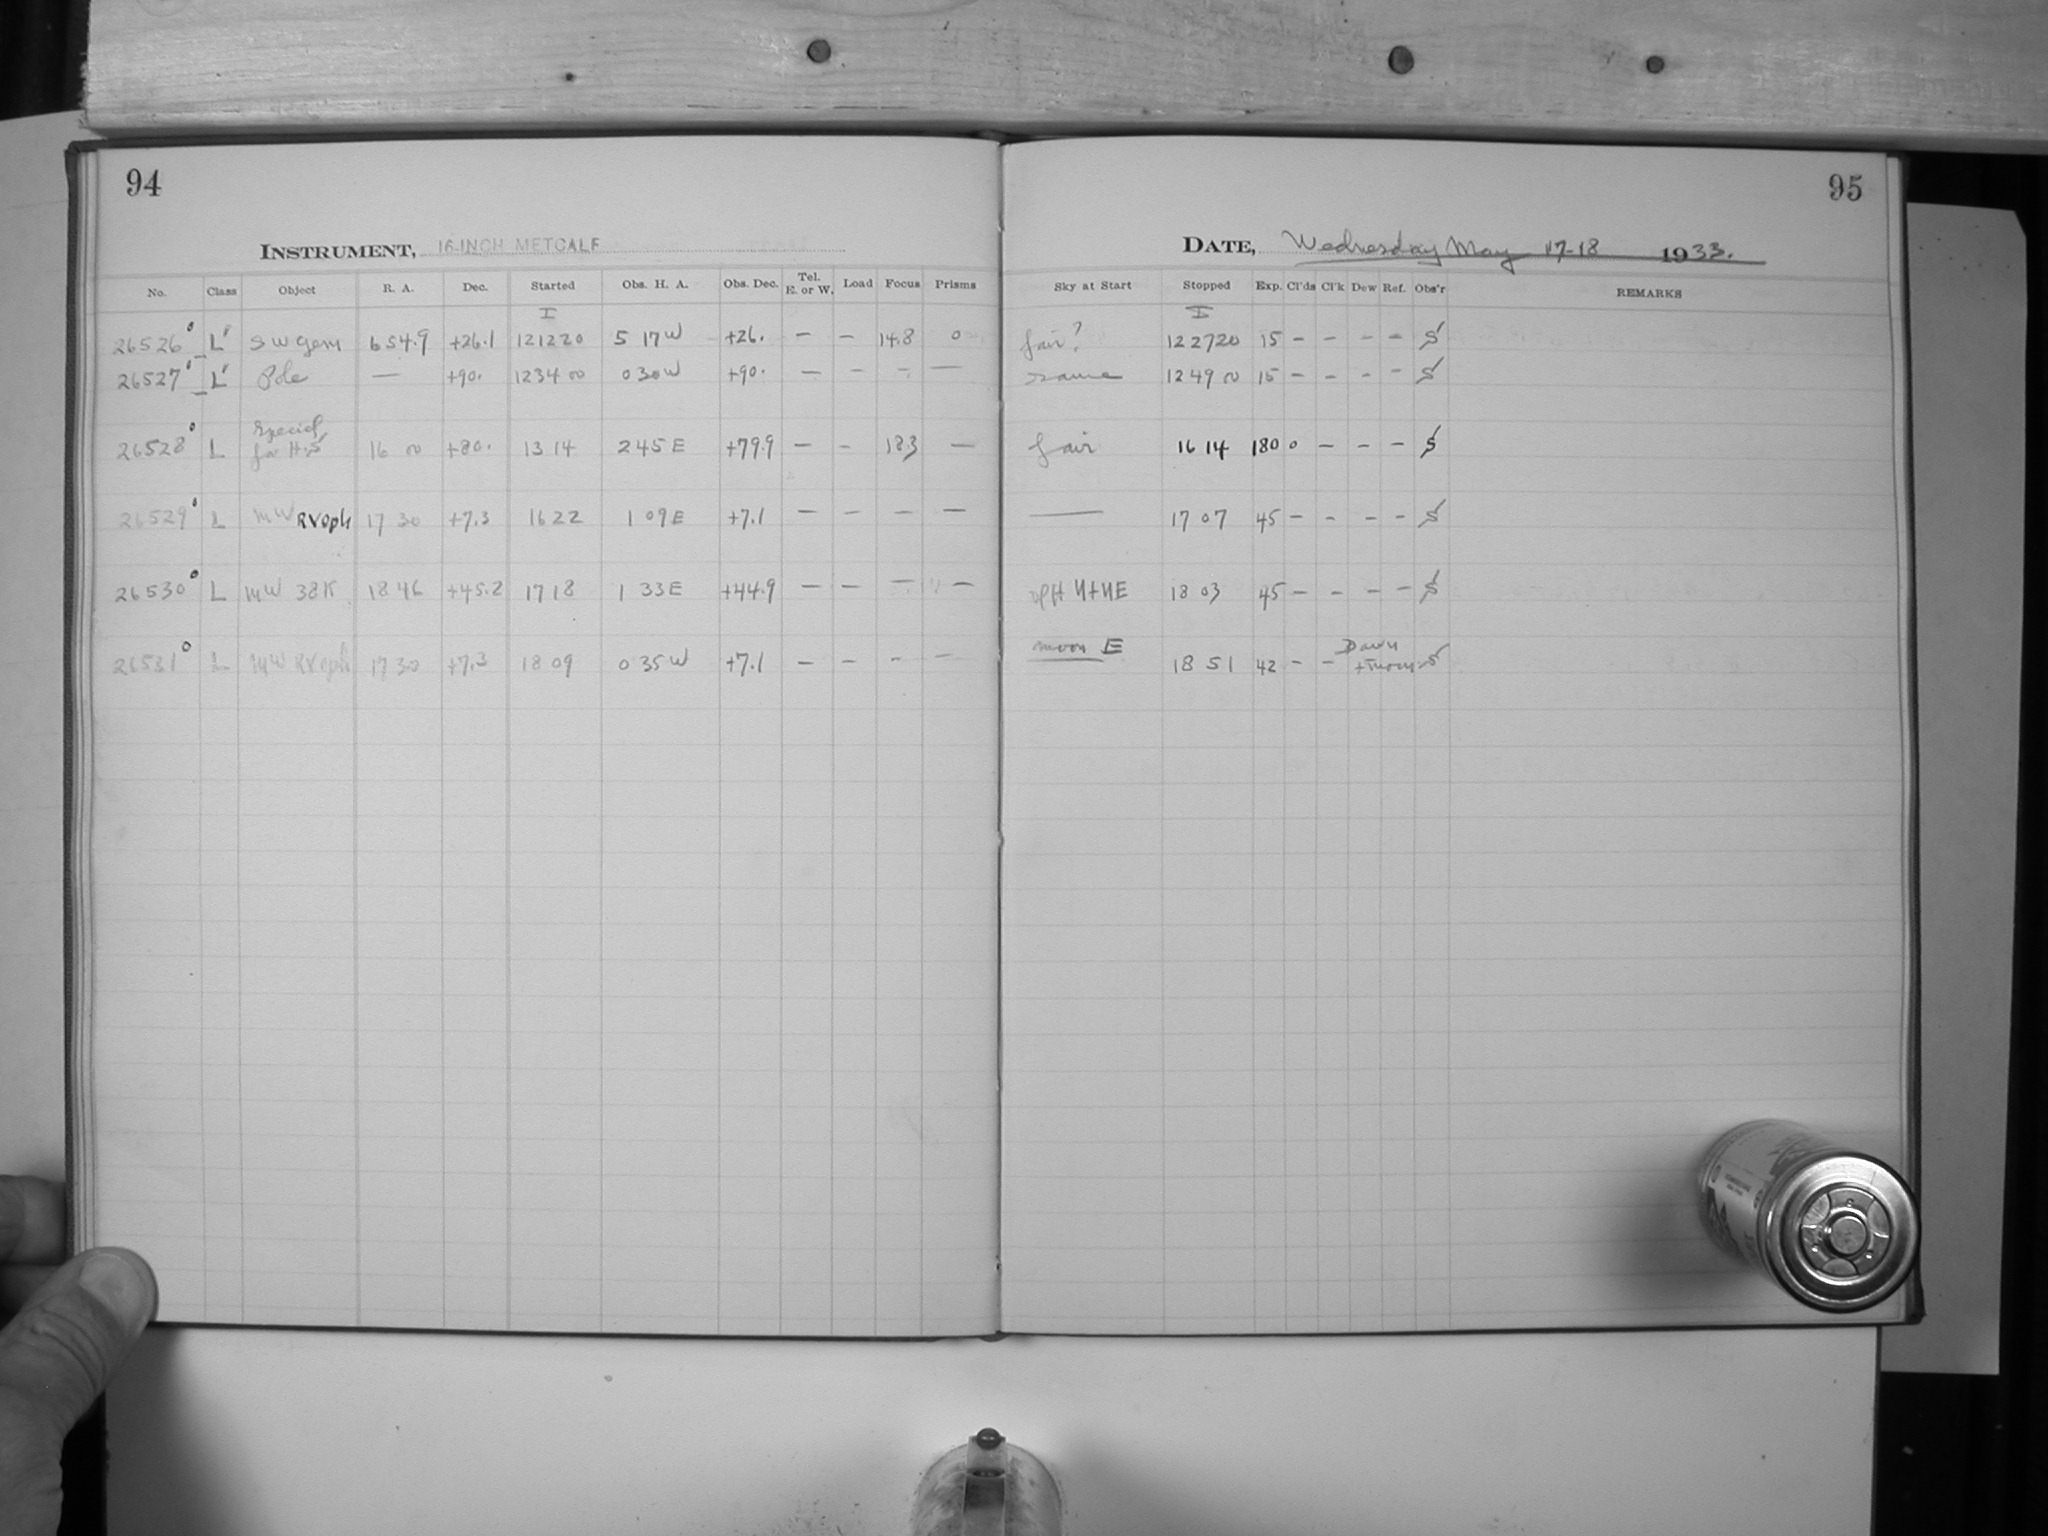 94
INSTRUMENT, 16-INCH METCALF
No. Class Object R. A. Dec. Started Obs. H. A. Obs. Dec. Tel. E. or W. Load Focus Prisms
I
26526 L' SW Gem 6 54.9 +26.1 12 12 20 5 17 W +26. — — 14.8 0
26527 L' Pole — +90. 12 34 00 0 30 W +90. — — — —
26528 L Special for H.S 16 00 +80. 13 14 2 45 E +79.9 — — 18.3 —
26529 L MW RVoph 17 30 +7.3 16 22 1 09 E +7.1 — — — —
26530 L MW 38K 18 46 +45.2 17 18 1 33 E +44.9 — — — —
26531 L MW RVoph 17 30 +7.3 18 09 0 35 W +7.1 — — — —
95
DATE, Wednesday May 17-18 1933.
Sky at Start Stopped Exp. Cl'ds Cl'k Dew Ref. Obs'r REMARKS
I
fair? 12 27 20 15 — — — — S
same 12 49 00 15 — — — — S
fair 16 14 180 0 — — — S
— 17 07 45 — — — — S
N+NE 18 03 45 — — — — S
moon E 18 51 42 — — Dawn + moon S